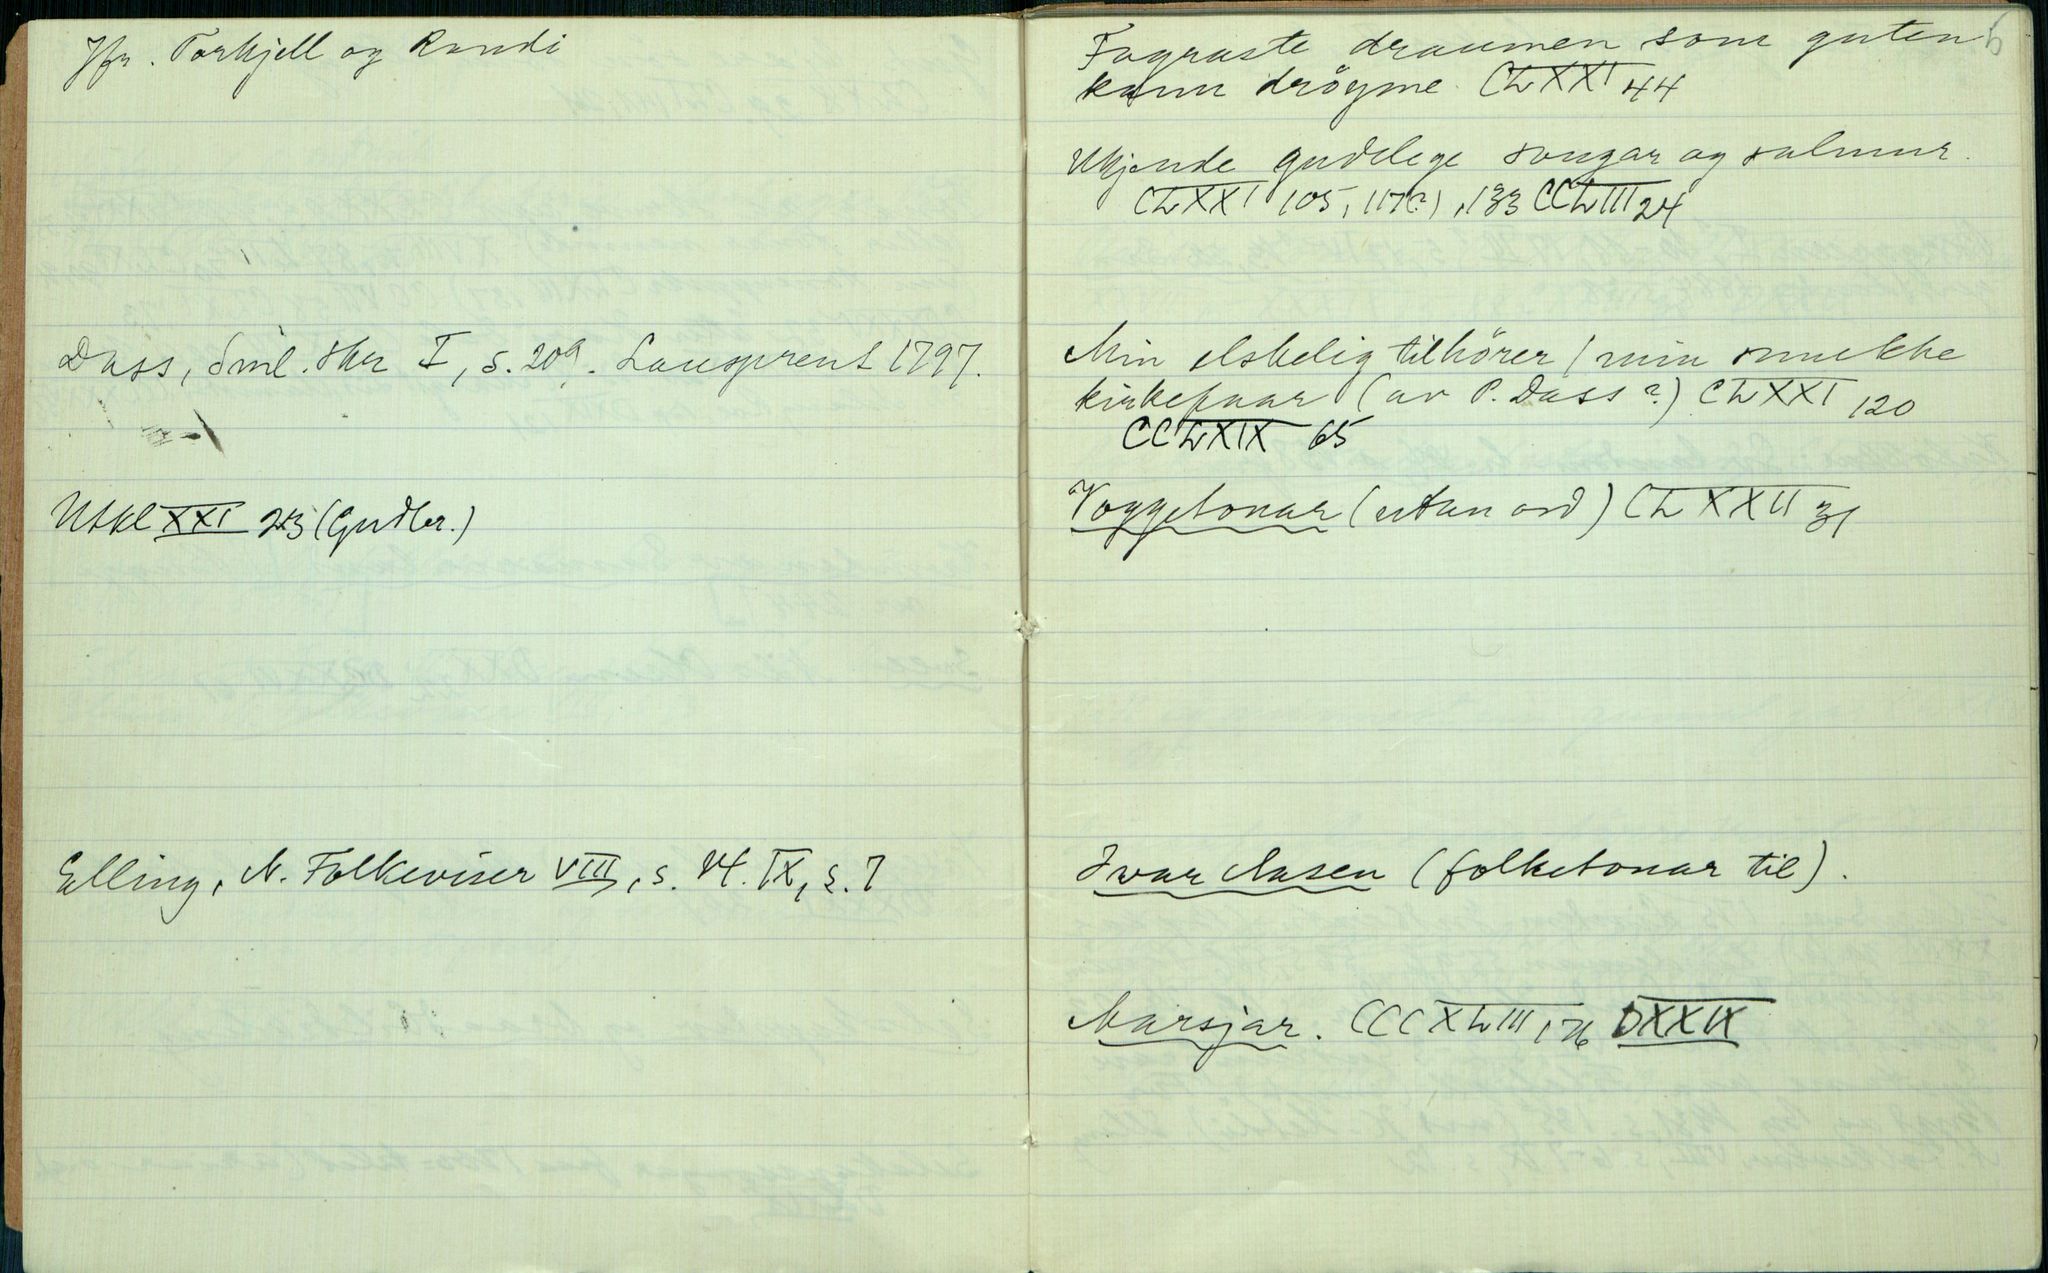 Jfr. Torkjell og Randi
Dass, Sml. skr I, s. 209. Lausprent 1797.
Utkl XXI 23 (Gudbr.)
Elling, N. Folkeviser VIII, s. 14. IX, s. 7
Fagraste draumen som guten
kann drøyme. CLXXI 44
Ukjende gudelege songar og salmur.
CLXXI 105, 117(?), 133 CCLIII 24
Min elskelig tilhörer / min smukke
kirkefaar (av P. Dass?) CLXXI 120
CCLXIX 65
Voggetonar (utan ord) CLXXII 31
Ivar Aasen (folketonar til).
Marsjar. CCCXLIII 176 DXXIX